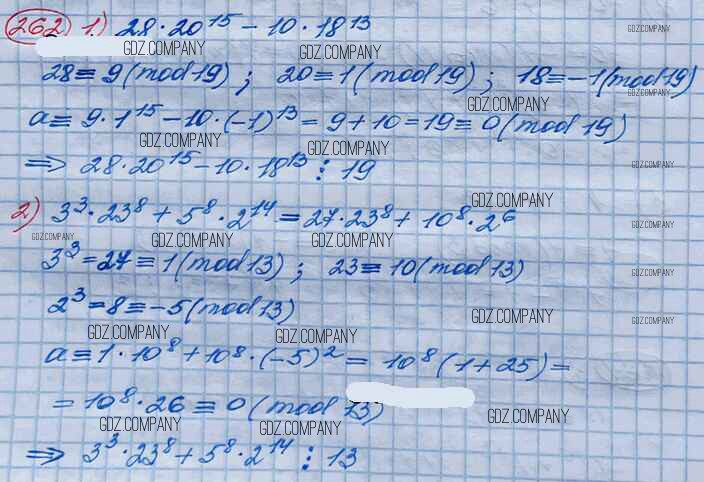 262) 1.) 28·20¹⁵ − 10·18¹³
GDZ.COMPANY
GDZ.COMPANY
GDZ.COMPANY
28 ≡ 9 (mod 19); 20 ≡ 1 (mod 19); 18 ≡ −1 (mod 19)
GDZ.COMPANY
GDZ.COMPANY
a ≡ 9·1¹⁵ − 10·(−1)¹³ = 9 + 10 = 19 ≡ 0 (mod 19)
GDZ.COMPANY
GDZ.COMPANY
⇒ 28·20¹⁵ − 10·18¹³ ⋮ 19
GDZ.COMPANY
GDZ.COMPANY
2) 3³·23⁸ + 5⁸·2¹⁴ = 27·23⁸ + 10⁸·2⁶
GDZ.COMPANY
GDZ.COMPANY
GDZ.COMPANY
GDZ.COMPANY
3³ = 27 ≡ 1 (mod 13); 23 ≡ 10 (mod 13)
GDZ.COMPANY
2³ = 8 ≡ −5 (mod 13)
GDZ.COMPANY
GDZ.COMPANY
GDZ.COMPANY
GDZ.COMPANY
a ≡ 1·10⁸ + 10⁸·(−5)² = 10⁸(1 + 25) =
= 10⁸·26 ≡ 0 (mod 13)
GDZ.COMPANY
GDZ.COMPANY
GDZ.COMPANY
⇒ 3³·23⁸ + 5⁸·2¹⁴ ⋮ 13